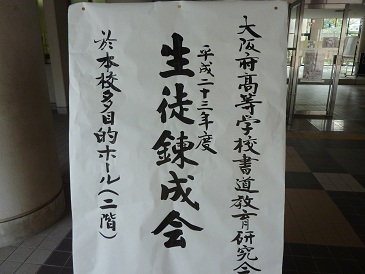 大阪府高等学校書道教育研究会
平成二十三年度
生徒錬成会
於本校多目的ホール(二階)